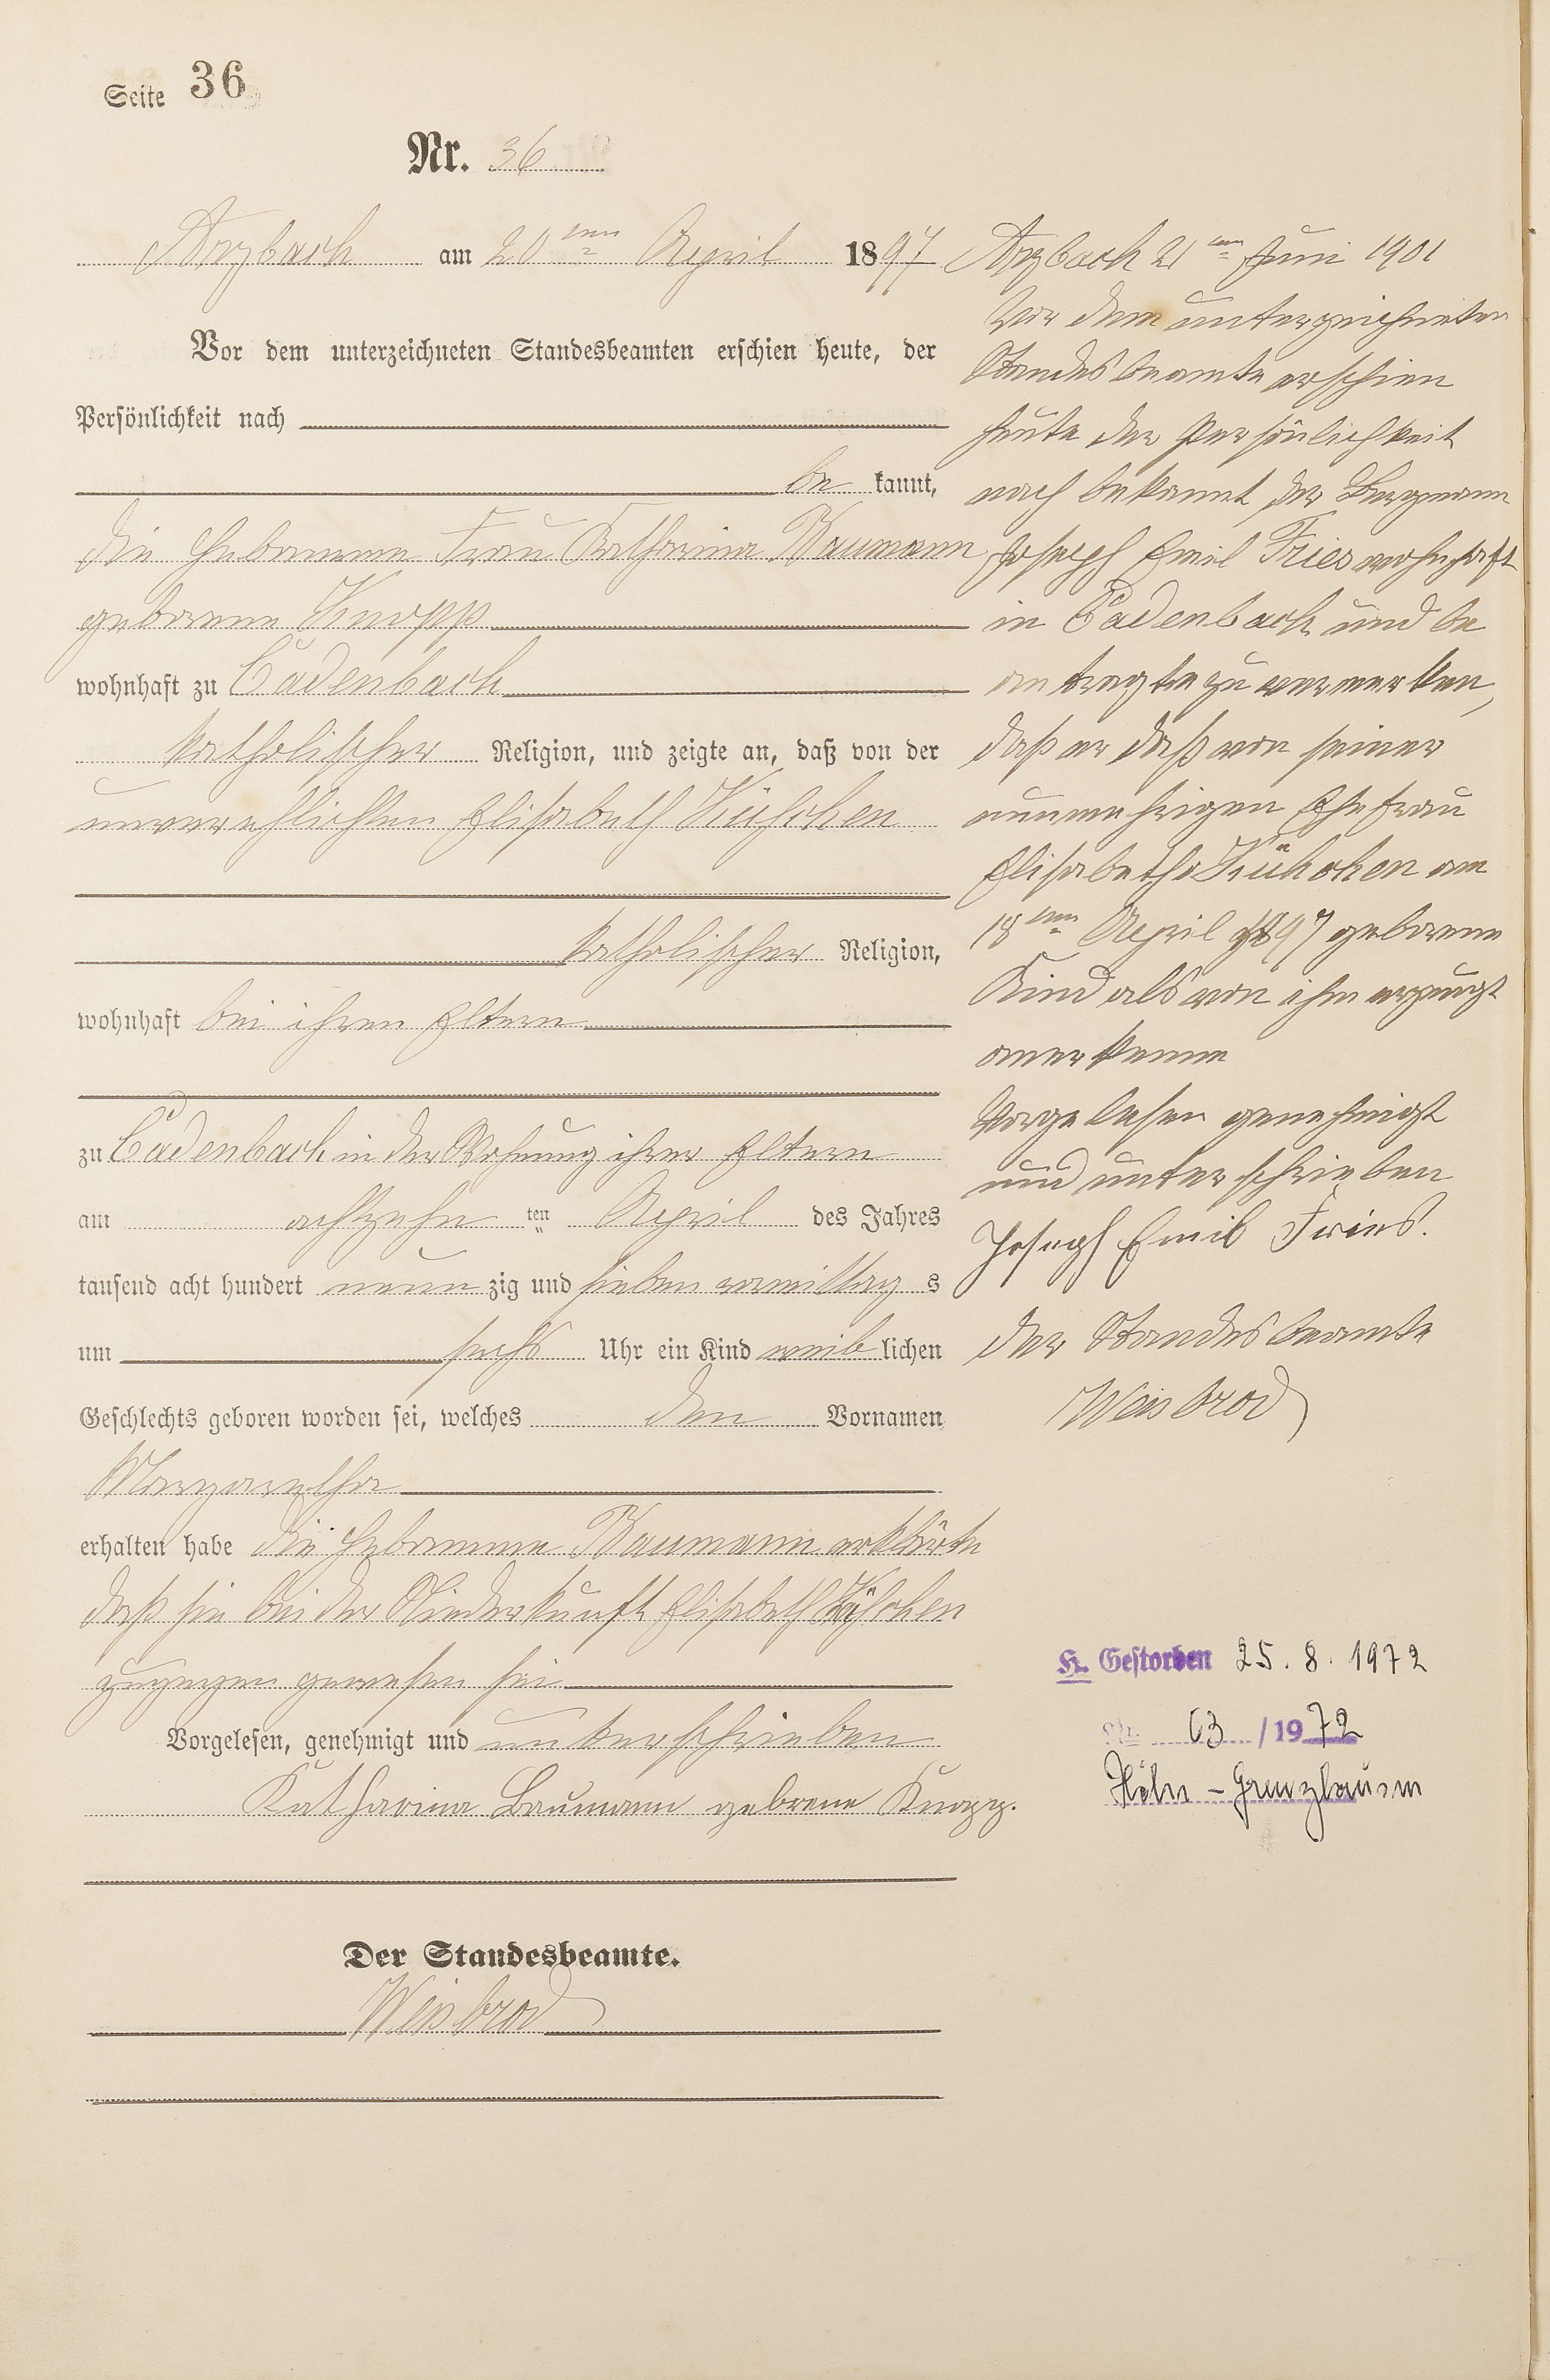 Seite 36
Nr. 36
Arzbach am 20ten April 1897
Vor dem unterzeichneten Standesbeamten erschien heute, der
Persönlichkeit nach
be kannt,
die Hebamme Frau Katharina Baumann
geborene Knopp
wohnhaft zu Cadenbach
katholischer Religion, und zeigte an, daß von der
unverehlichten Elisabeth Kühchen
katholischer Religion,
wohnhaft bei ihren Eltern
zu Cadenbach in der Wohnung ihrer Eltern
am achtzehn ten April des Jahres
tausend acht hundert neun zig und sieben vormittag s
um sechs Uhr ein Kind weib lichen
Geschlechts geboren worden sei, welches den Vornamen
Margaretha
erhalten habe die Hebamme Baumann erklärte
daß sie bei der Niederkunft Elisabeth Kühchen
zugegen gewesen sei
Vorgelesen, genehmigt und unterschrieben
Katharina Baumann geborene Knopp.
Der Standesbeamte.
Weisbrod
Arzbach 21ten Juni 1901
Vor dem unterzeichneten
Standesbeamte erschien
heute der Persönlichkeit
nach bekannt, der Bergmann
Joseph Emil Fries wohnhaft
in Cadenbach und be
antragte zu vermerken,
daß er daß von seiner
nunmehrigen Ehefrau
Elisabetha Kühchen am
18ten April 1897 geborene
Kind als von ihm erzeugt
anerkenne
Vorgelesen genehmigt
und unterschrieben
Joseph Emil Fries.
Der Standesbeamte
Weisbrod
H. Gestorben 25. 8. 1972
Nr. 63 /1972
Höhr-Grenzhausen